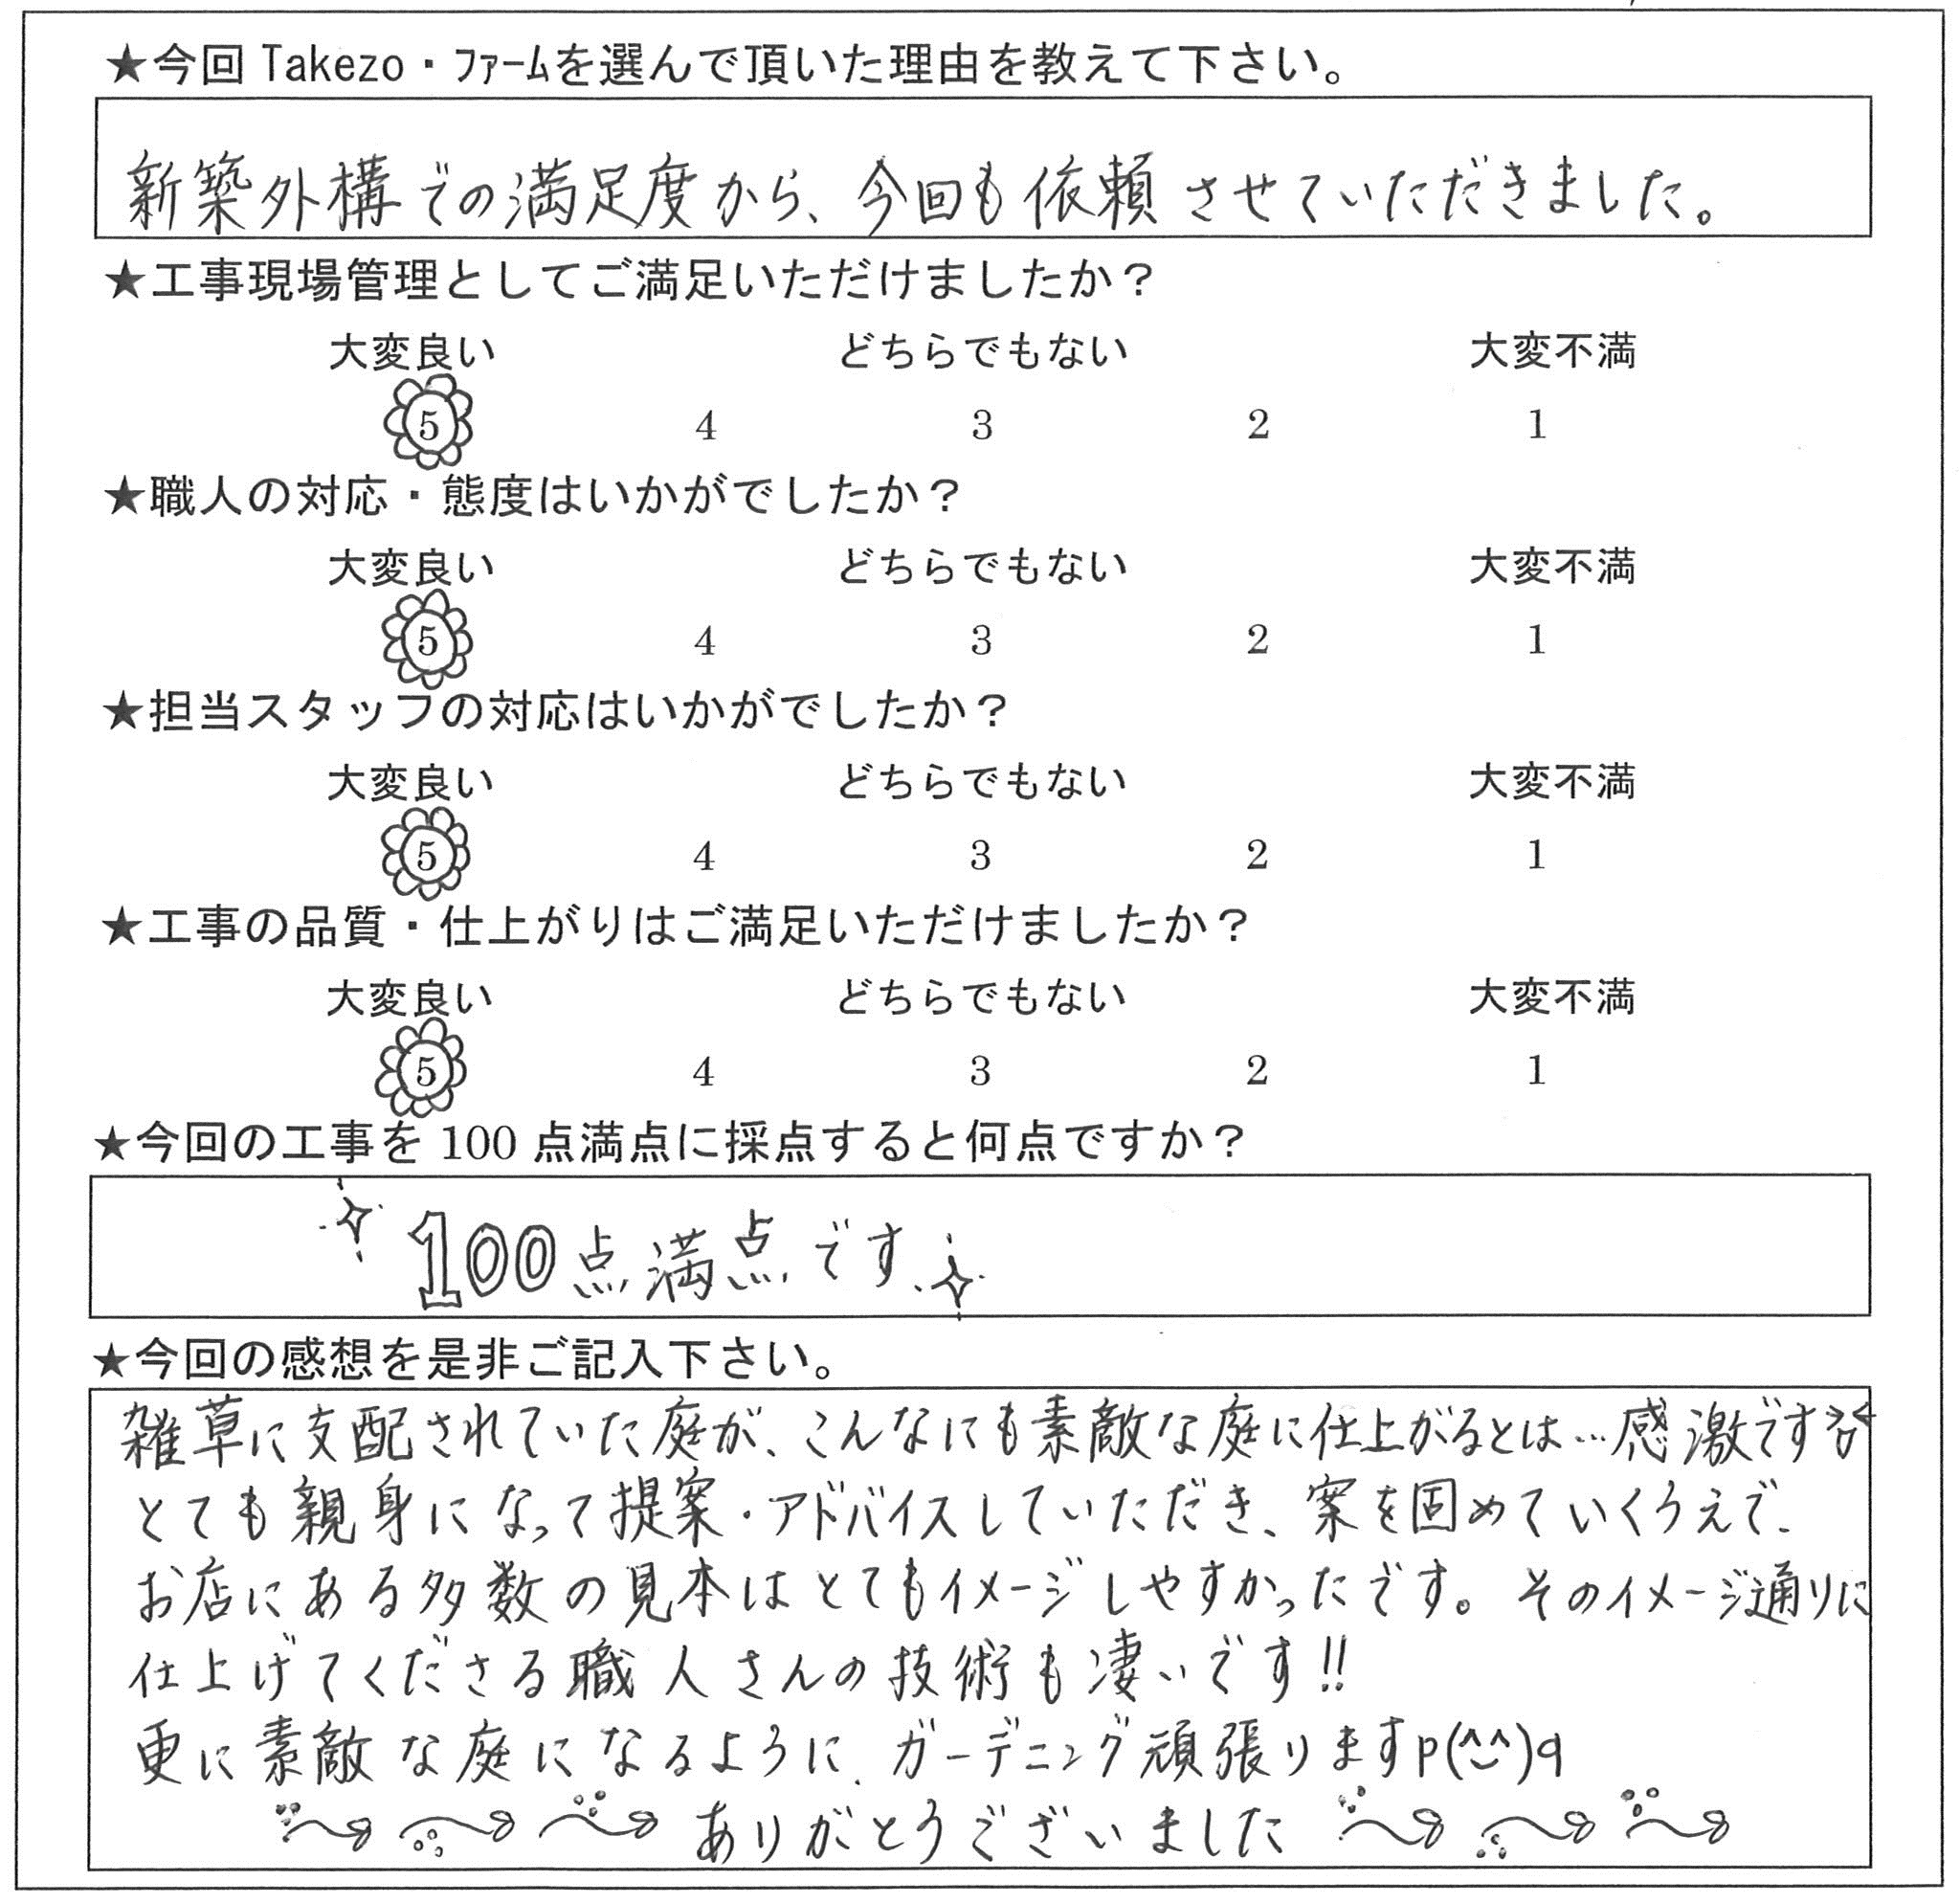 ★今回 Takezo・ファームを選んで頂いた理由を教えて下さい。
新築外構での満足度から、今回も依頼させていただきました。
★工事現場管理としてご満足いただけましたか？
大変良い どちらでもない 大変不満
5 4 3 2 1
★職人の対応・態度はいかがでしたか？
大変良い どちらでもない 大変不満
5 4 3 2 1
★担当スタッフの対応はいかがでしたか？
大変良い どちらでもない 大変不満
5 4 3 2 1
★工事の品質・仕上がりはご満足いただけましたか？
大変良い どちらでもない 大変不満
5 4 3 2 1
★今回の工事を 100 点満点に採点すると何点ですか？
100点満点です
★今回の感想を是非ご記入下さい。
雑草に支配されていた庭が、こんなにも素敵な庭に仕上がるとは…感激です
とても親身になって提案・アドバイスしていただき、案を固めていくうえで、
お店にある多数の見本はとてもイメージしやすかったです。そのイメージ通りに
仕上げてくださる職人さんの技術も凄いです!!
更に素敵な庭になるように、ガーデニング頑張りますp(^^)q
ありがとうございました